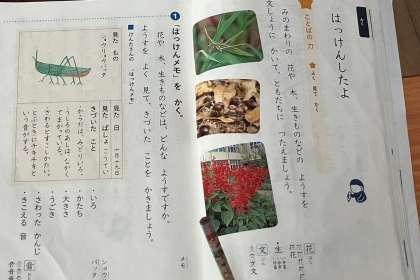 かく
はっけんしたよ
ことばの力
★よく 見て かく
みのまわりの 花や 木、生きものなどの ようすを
文しょうに かいて、ともだちに つたえましょう。
花
生
文
1 「はっけんメモ」を かく。
花や 木、生きものなどは、どんな ようすですか。
ようすを よく 見て、きづいた ことを かきましょう。
■けんたさんの 「はっけんメモ」
見た もの
ショウリョウバッタ
見た 日
見た ばしょ
きづいた こと
からだは、みどりいろ。
・いろ
・かたち
・大きさ
・うごき
・さわった かんじ
・きこえる 音
メモ
ショウリョウ
バッタ
音